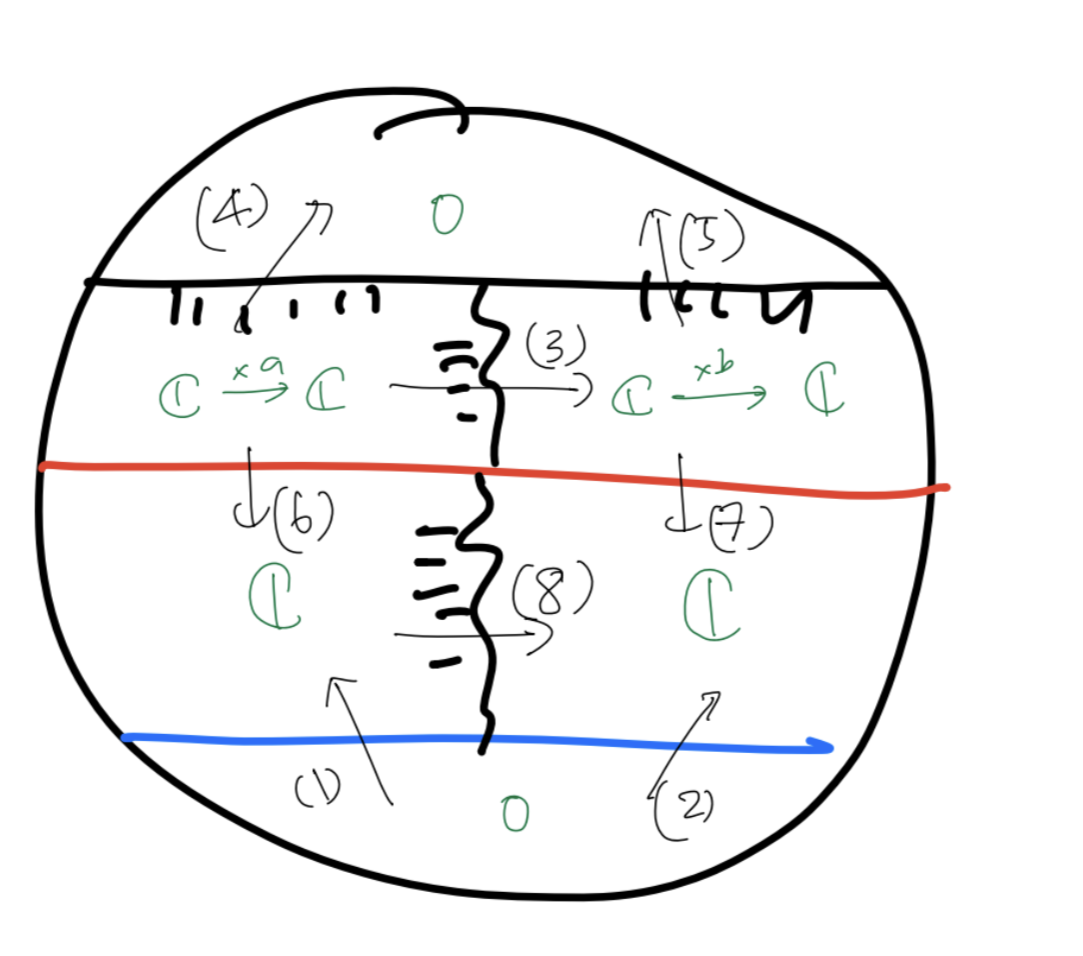 (4) 0 (5)
ℂ —×a→ ℂ (3) ℂ —×b→ ℂ
(6) (7)
ℂ (8) ℂ
(1) 0 (2)